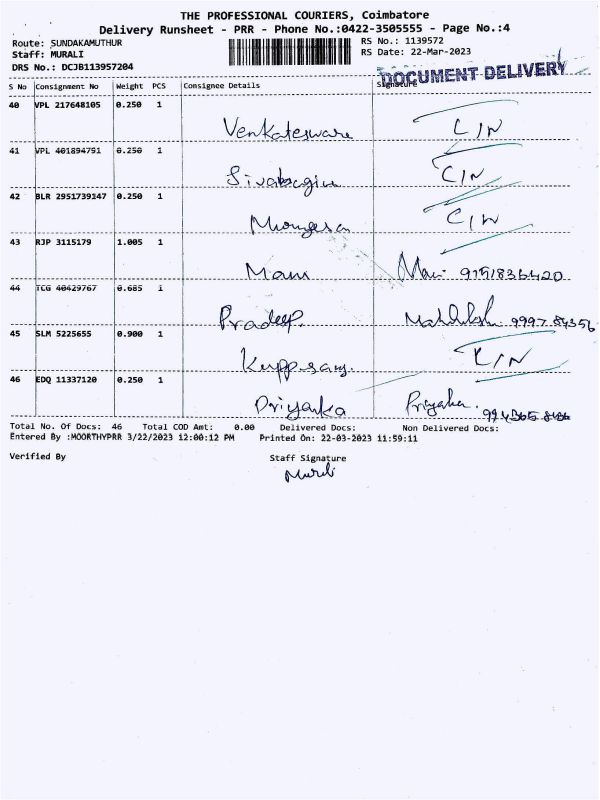 THE PROFESSIONAL COURIERS, Coimbatore
Delivery Runsheet - PRR - Phone No.:0422-3505555 - Page No.:4
Route: SUNDAKAMUTHUR RS No.: 1139572
Staff: MURALI RS Date: 22-Mar-2023
DRS No.: DCJB113957204 DOCUMENT DELIVERY
S No Consignment No Weight PCS Consignee Details Signature
40 VPL 217648105 0.250 1
Venkateswara C/N
41 VPL 401894791 0.250 1
C/N
42 BLR 2951739147 0.250 1
C/N
43 RJP 3115179 1.005 1
Mani Mani 9751836420
44 TCG 40429767 0.685 1
Pradeep
45 SLM 5225655 0.900 1
Kuppsamy
46 EDQ 11337120 0.250 1
Priyanka
Total No. Of Docs: 46 Total COD Amt: 0.00 Delivered Docs: Non Delivered Docs:
Entered By :MOORTHYPRR 3/22/2023 12:00:12 PM Printed On: 22-03-2023 11:59:11
Verified By Staff Signature
Murali